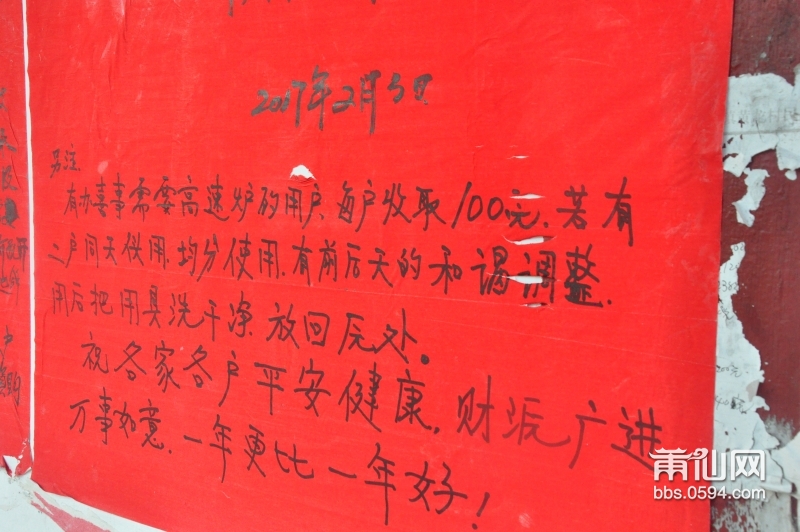 2017年2月5日
另注:
有办喜事需要高速炉的用户,每户收取100元.若有
二户同天使用,均分使用.有前后天的和谒调整.
用后把用具洗干净放回厡处。
祝各家各户平安健康,财派广进
万事如意.一年更比一年好!
莆仙网
bbs.0594.com